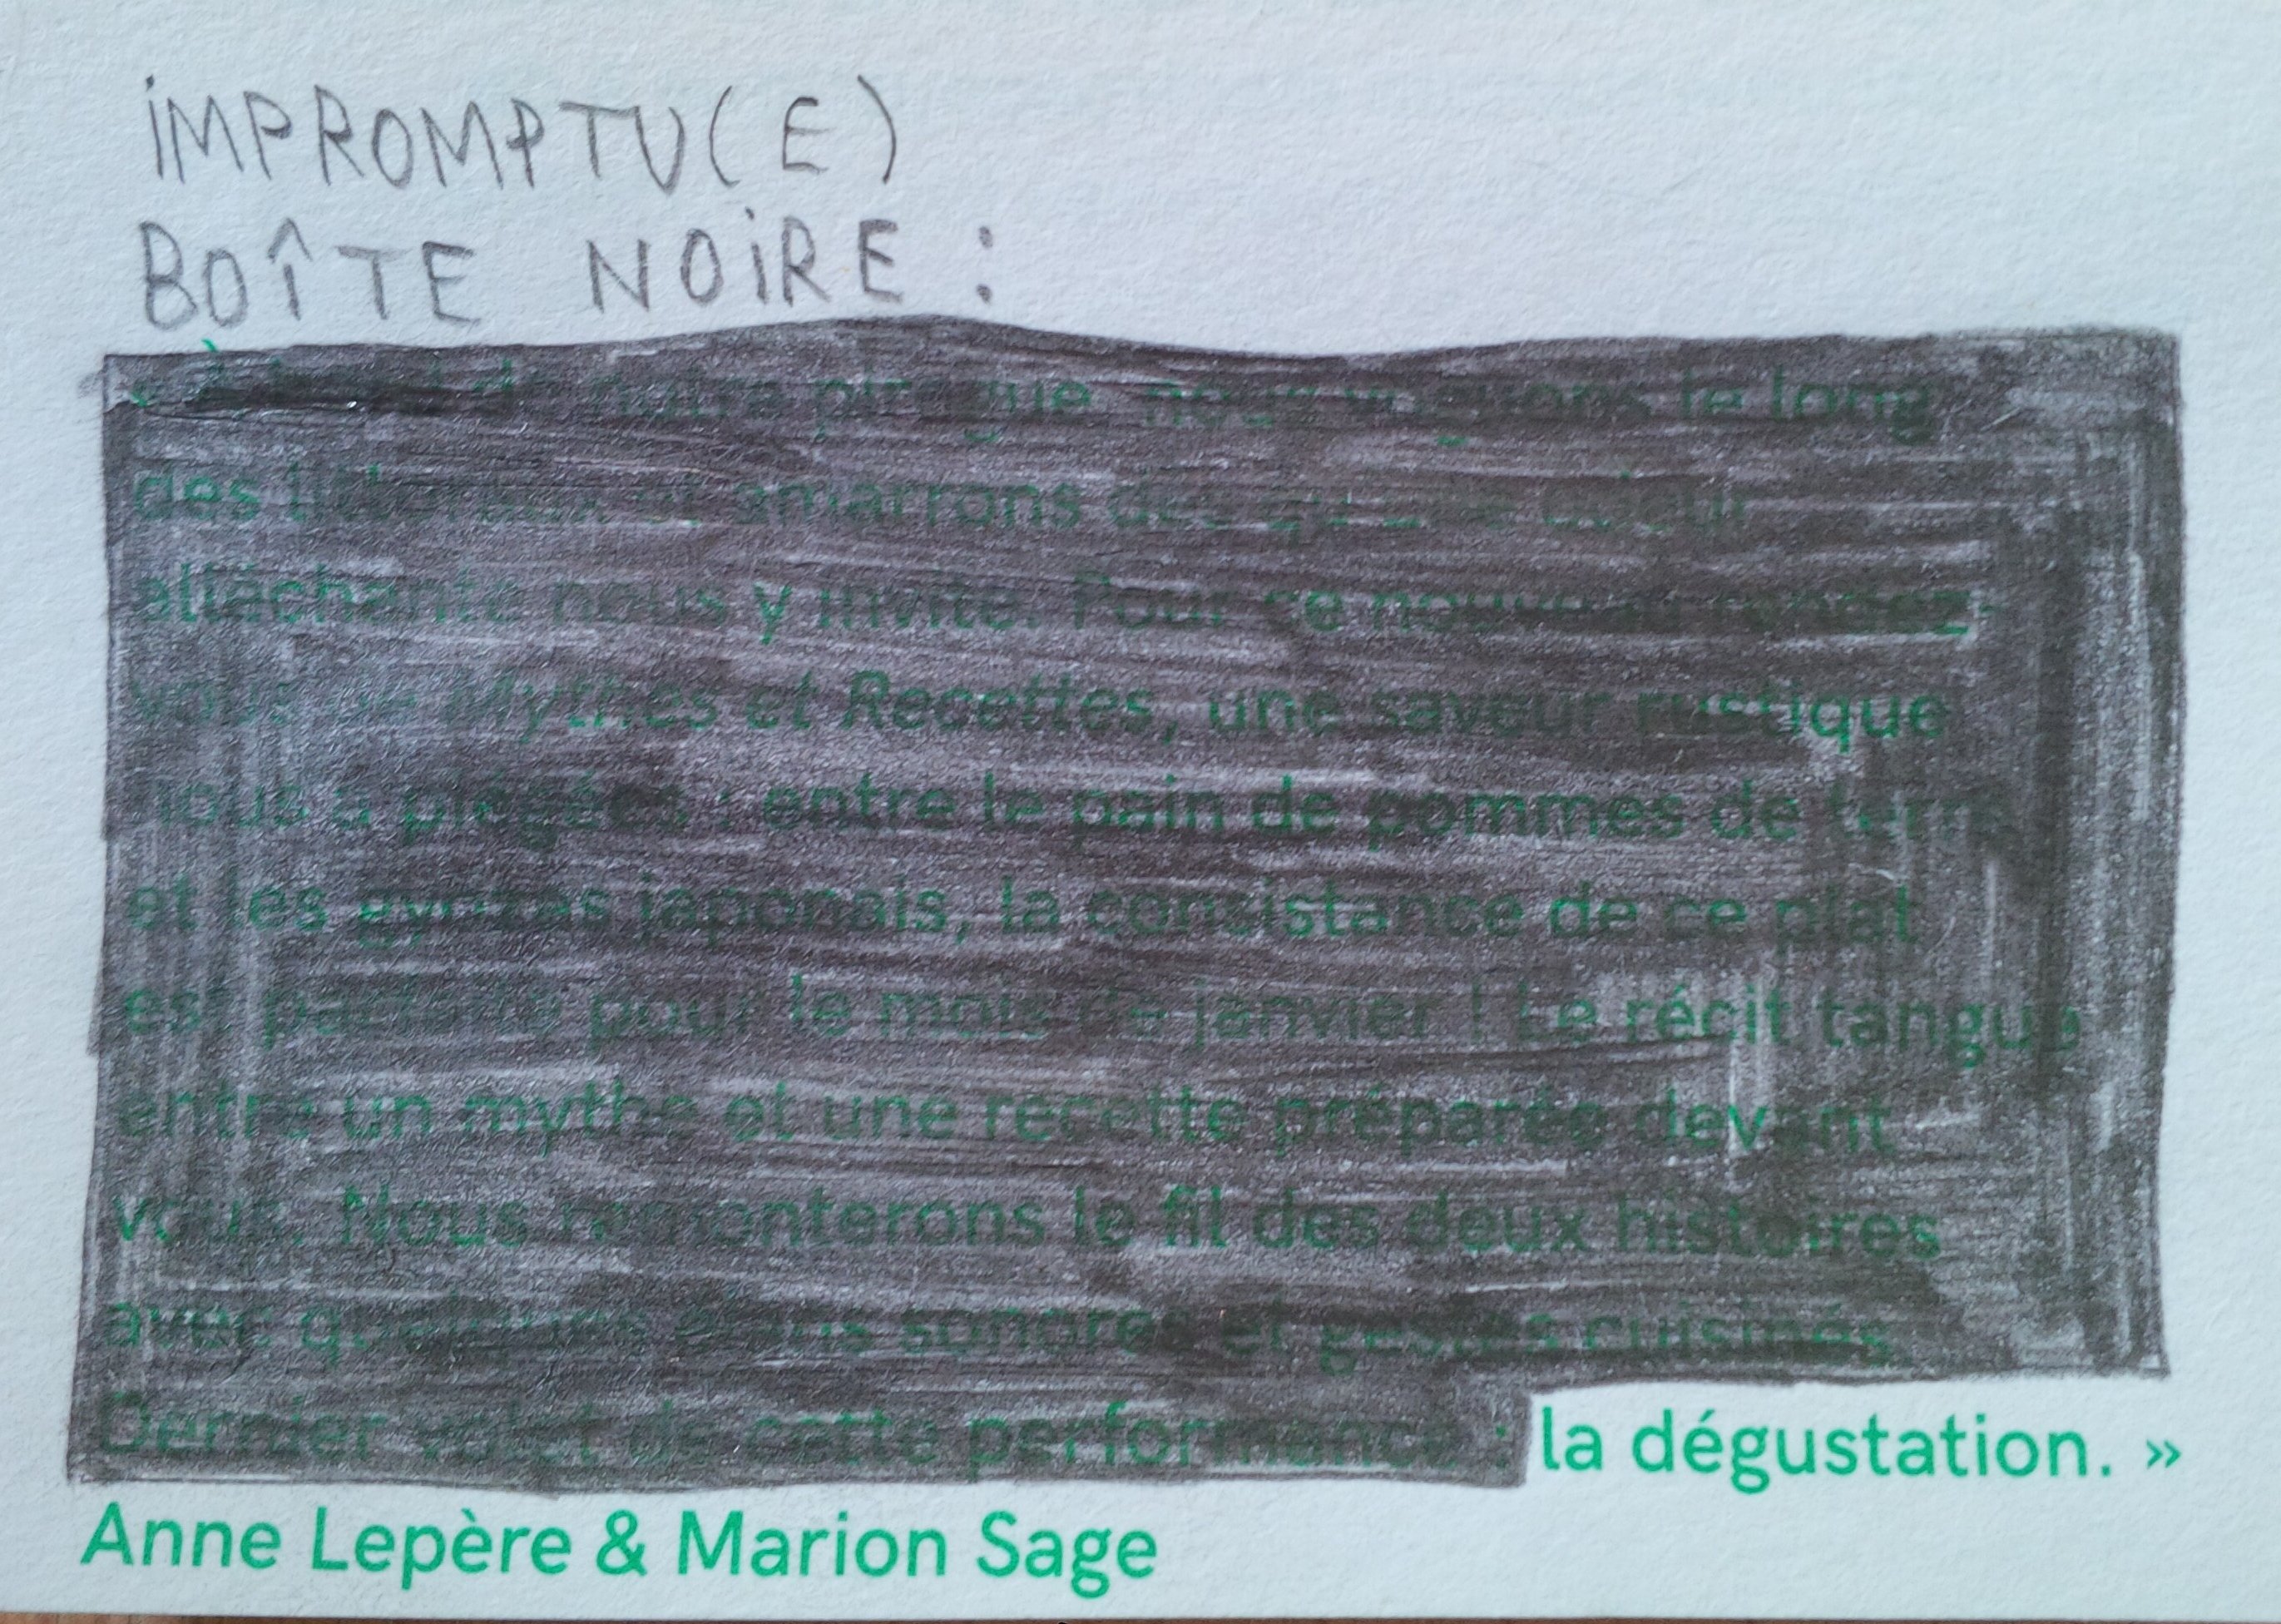 iMPROMPTU(E)
BOÎTE NOiRE :
« À bord de notre pirogue, nous voguons le long
des littoraux et amarrons dès qu'une odeur
alléchante nous y invite. Pour ce nouveau rendez-
vous de Mythes et Recettes, une saveur rustique
nous a piégées : entre le pain de pommes de terre
et les gyozas japonais, la consistance de ce plat
est parfaite pour le mois de janvier ! Le récit tangue
entre un mythe et une recette préparée devant
vous. Nous remonterons le fil des deux histoires
avec quelques sonores et gestes cuisinés
Dernier volet de cette performance : la dégustation. »
Anne Lepère & Marion Sage